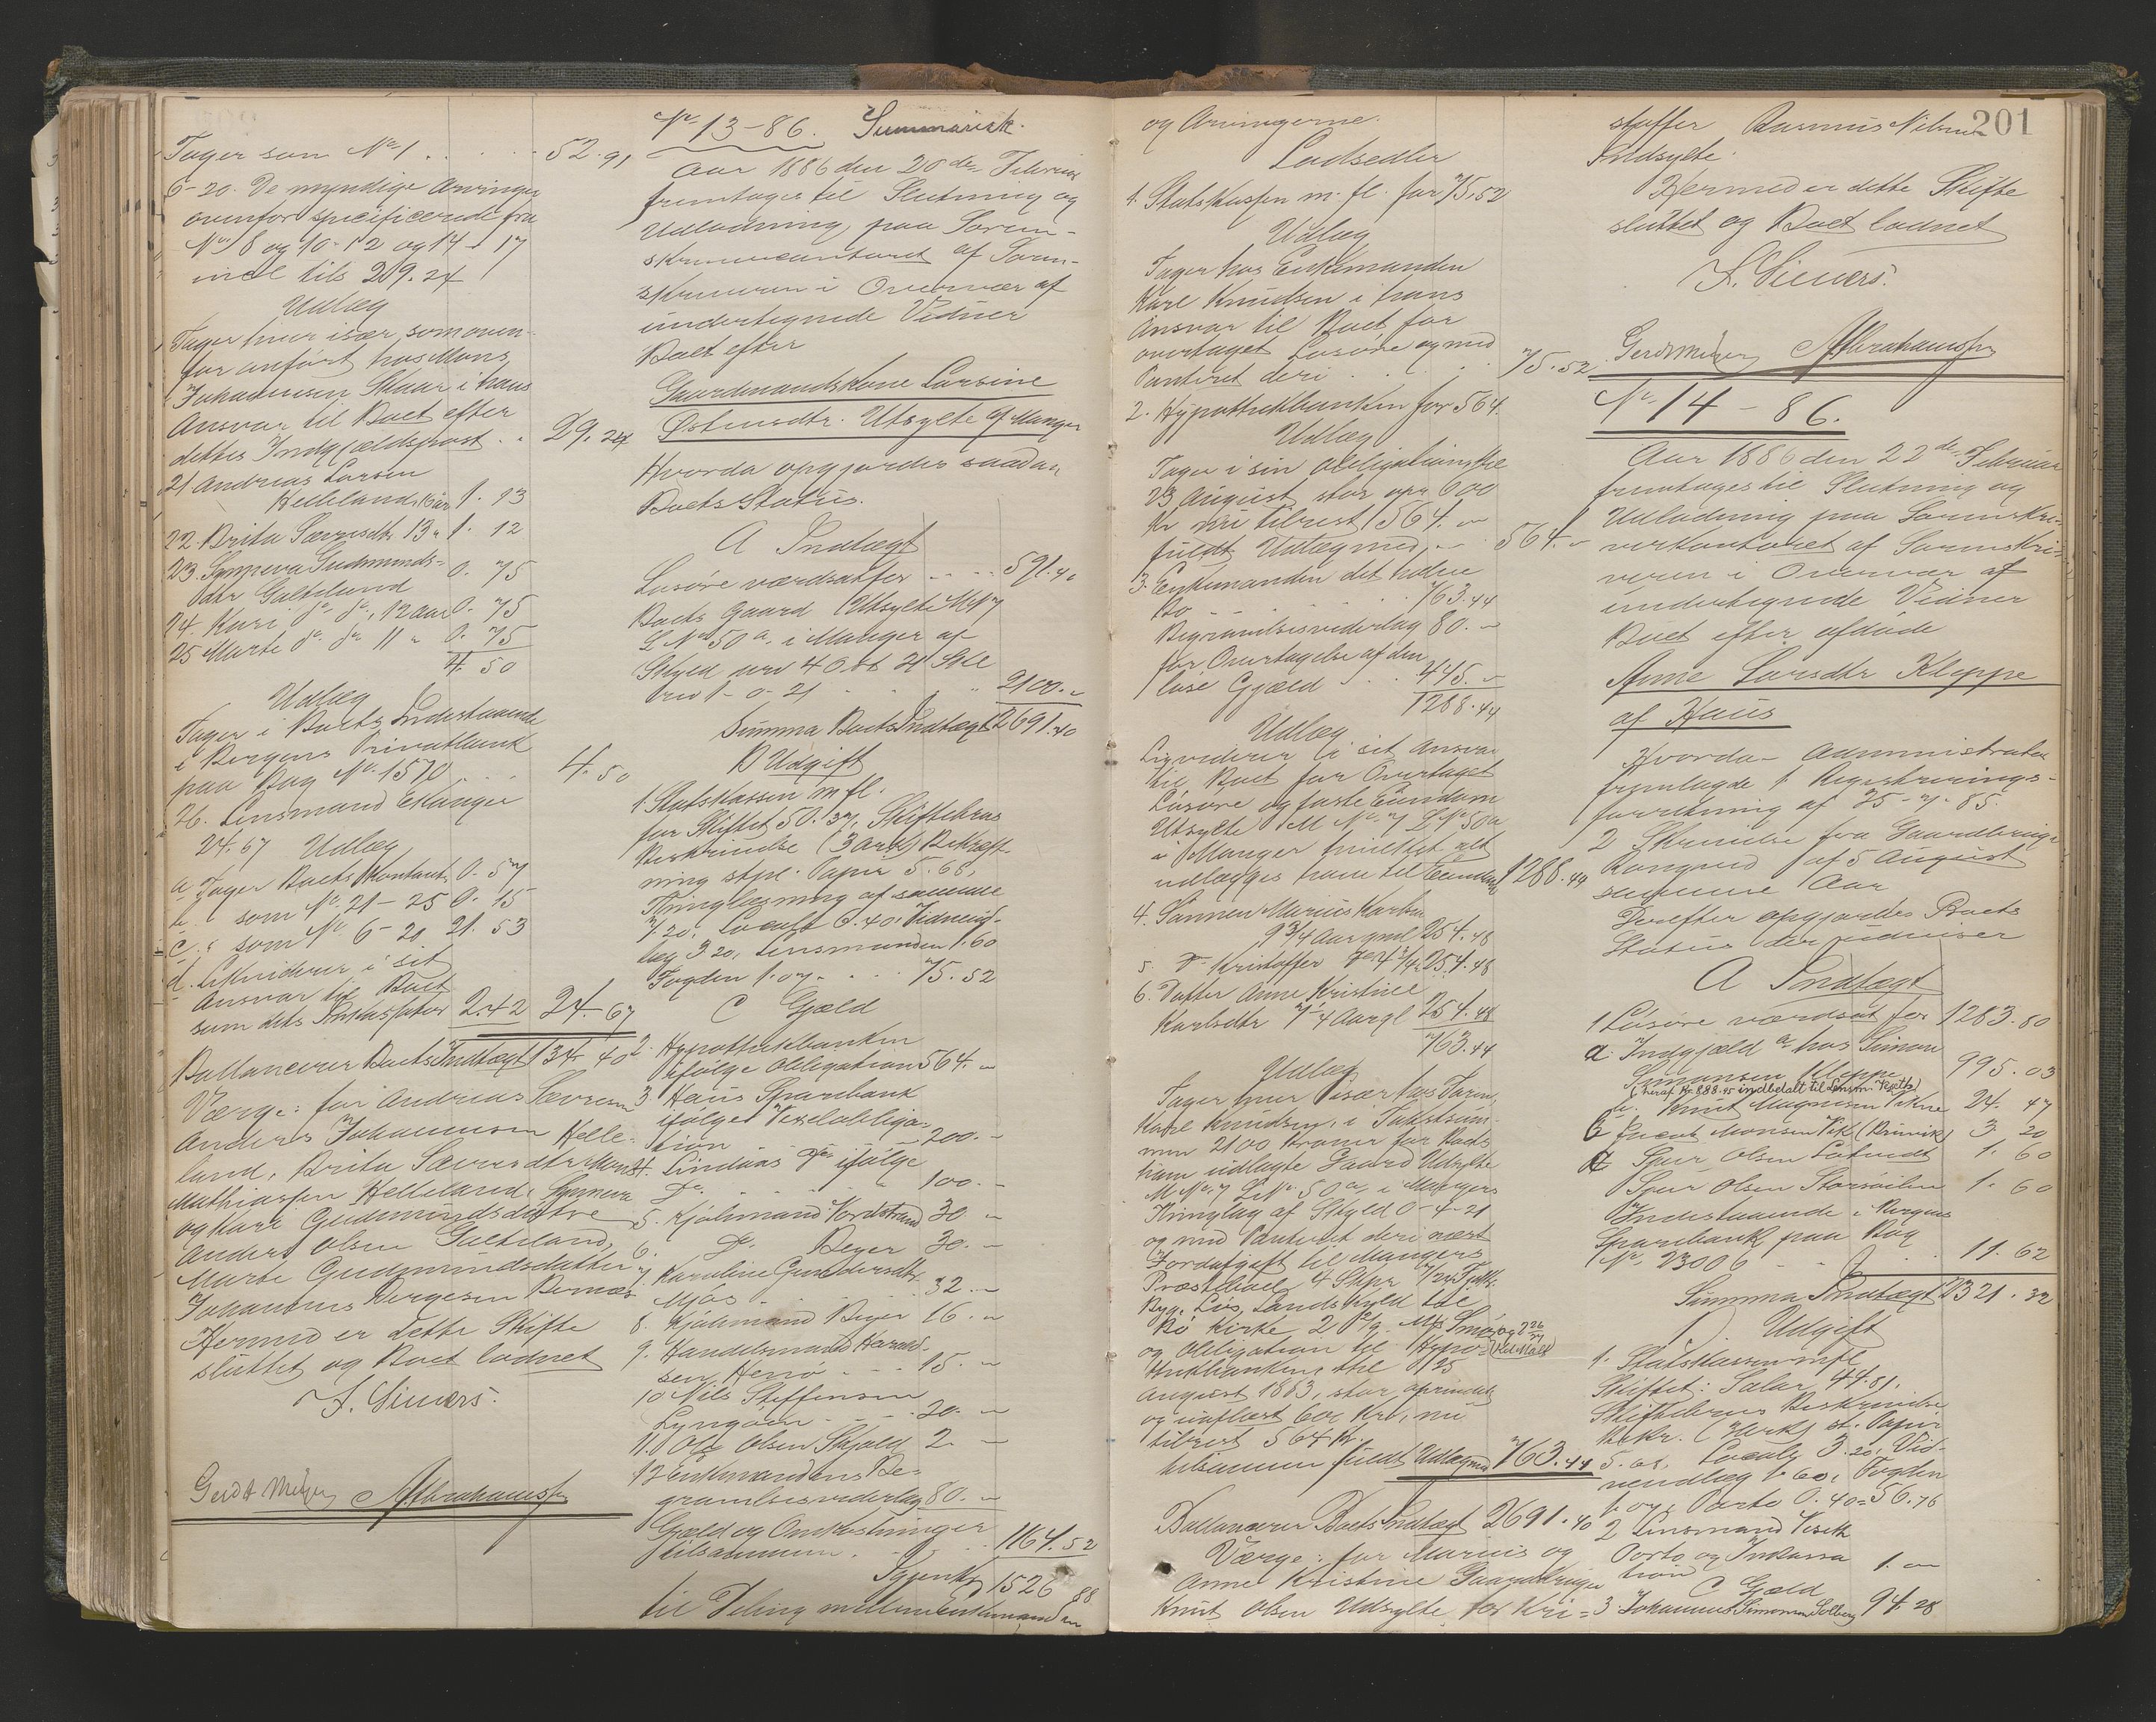 Tager som No 1 . . . . . 52.91
6-20. De myndige Arvinger
ovenfor specificerede fra
No 8 og 10-12 og 14-17
incl tils 29.24
Udlæg
Tager hver især som oven-
for anført hos Mons
Johannesen Skaar i hans
Ansvar til Boet efter
dettes Indgjældspost . . 29.24
21 Andreas Larsen
Helleland 1. 13
22. Brita Sævrisdtr 13 " 1. 12
23. Synneva Gudmunds-
datr Galteland 0. 75
24. Kari do do, 12 aar 0. 75
25 Marte do do 11 " 0. 75
4. 50
Udlæg
Tager i Boets Indestaaende
i Bergens Privatbank
paa Bog No. 1570 . . . 4.50
26. Lensmand Ekanger
24.67 Udlæg
a Tager Boets Kontant 0. 57
b. " som No. 21-25 0. 15
c. " som No. 6-20 21. 53
d. Likviderer i sit
Ansvar til Boet
som dets Inkassator 2.42 24.67
Ballancerer Boets Indtægt 134. 40
Værge: for Andreas Sævresen
Anders Johannesen Helle-
land, Brita Sævresdtr Mons
Mathiassen Helleland, Synneva
og Kari Gudmundsdøtre
Anders Olsen Galteland,
Marte Gudmundsdatter
Johannes Bergesen Bernæs
Hermed er dette Skifte
sluttet og Boet lodnet
F. Sievers.
Gerdt Meyer Abrahamsen
No 13-86. Summarisk.
Aar 1886 den 20de Februar
fremtages til Slutning og
Udlodning paa Soren-
skriverkontoret af Soren-
skriveren i Overvær af
undertegnede Vidner
Boet efter
Gaardmandskone Larsine
Østensdtr. Utsylte af Manger
Hvorda opgjordes saadan
Boets Status.
A Indtægt
Løsøre værdsatter . . . . 591.40
Boets Gaard Utsylte M No 7
L No 50 a. i Manger af
Skyld urev 4 Ort 21 Skl
rev 1-0-21 . . . . 2100.-
Summa Boets Indtægt 2691.40
B Udgift
1. Statskassen m fl.
for Skiftet 50.37, Skiftebrev
Beskrivelse (3 Ark) Bekræft-
ning stpl. Papir 5.68,
Thinglæsning af samme
7.20, Localt 6.40 Vidneud-
læg 3 20, Lensmanden 1.60
Fogden 1.07 . . . . 75.52
C Gjæld
2. Hypothekbanken
ifølge Obligation 564. -
3 Haus Sparebank
ifølge Vexelobliga-
tion . . . . 200. -
4. Lindaas do ifølge
Do. . . . . 100. -
5. Kjøbmand Vordstrand 30 -
6. Do Beyer 30. -
7 Karoline Gundersdtr
Mjøs . . . . 32. -
8. Kjøbmand Beyer 16. -
9. Handelsmand Harald-
sen Herrø . . 15. -
10 Nils Steffensen
Lyngøen . . . . 20. -
11. Ole Olsen Skjold 2. -
12 Enkemandens Be-
gravelsesvederlag 80. -
Gjæld og Omkostninger
tilsammen . . . 1164.52
Igjen Kr 1526 88
til Deling mellem Enkemanden
og Arvingerne.
Lodsedler
1. Statskassen m. fl. for 75.52
Udlæg
Tager hos Enkemanden
Karl Knudsen i hans
Ansvar til Boet for
overtaget Løsøre og med
Panteret deri . . . . 75.52
2. Hypothekbanken for 564.
Udlæg
Tager i sin Obligation thl
23 August stor opr 600
Kr nu tilrest 564. -
fuldt Udlæg med . - 564. -
3. Enkemanden det halve
Bo . . . . 763.44
Begravelsesvederlag 80. -
for Overtagelse af den
løse Gjæld . . . 445. -
1288.44
Udlæg
Liqviderer i sit Ansvar
til Boet for Overtaget
Løsøre og faste Eiendom
Utsylte M No. 7 L No 50 a
i Manger hvilket alt
udlægges ham til Eiendom 1288.44
4. Sønnen Marius Karlsen
9 3/4 Aar gml 254.48
5. do Kristoffer do 4 3/4 254.48
6. Datter Anne Kristine
Karlsdtr 7 1/4 Aar gl 254.48
763.44
Udlæg
Tager hver især hos Faren,
Karl Knudsen, i Takstsum-
men 2100 Kroner for Boets
ham udlagte Gaard Udsylte
M No. 7 L No. 50 a, i Mangers
Thinglag af Skyld 0-4-21
og med Panteret deri næst
Jordafgift til Mangers
Præstebol 4 Skpr
Byg. Løs, Landskyld til
Bø Kirke 2
og Obligation til Hypo-
thekbanken thl 25
August 1883, stor oprindel
og uaflæst 600 Kr, nu
tilrest 564 Kr.
tilsammen fuldt Udlæg med 763.44
Ballancerer Boets Indtægt 2691.40
Værge: for Marius og
Anne Kristine Gaardbruger
Knut Olsen Udsylte, for Kri-
201
stoffer Rasmus Nilsen
Indsylte.
Hermed er dette Skifte
sluttet og Boet lodnet
F. Sievers.
Gerdt Meyer Abrahamsen
No 14-86.
Aar 1886 den 22de Februar
fremtages til Slutning og
Udlodning paa Sorenskri-
verkontoret af Sorenskri-
veren i Overvær af
undertegnede Vidner
Boet efter afdøde
Anne Larsdtr Kleppe
af Haus
Hvorda Administrator
fremlagde 1 Registrerings-
forretning af 25-7-85.
2 Skrivelse fra Gaardbruger
af 5 August
samme Aar
Derefter opgjordes Boets
Status der udviser
A Indtægt
1 Løsøre værdsat for 1283.80
a. Indgjæld a hos Simon
Simonsen Kleppe 995.03
(heraf Kr 888.95 indbetalt til Lensm. Kieth)
b. Knut Magnesen Vikne 24. 47
c Knut Monsen Vik (Bruvik) 3 20
d Sjur Olsen 1. 60
Sjur Olsen Storsøilen 1. 60
Indestaaende i Bergens
Sparebank paa Bog
No. 23006 . . . 11. 62
Summa Indtægt 2321.32
B. Udgift
1. Statskassen mfl
Skiftet: Salær 44.81,
Skiftebrevs Beskrivelse
Bekr. ( Ark) st. Papir
5.68, Localt 3.20, Vid-
neudlæg 1 60, Fogden
1. 07, Porto 0.40 = 56.76
2 Lensmand Vieth
Porto og Inkassa-
tion 1. -
C Gjæld
3 Johannes Simonsen Solberg 94.28